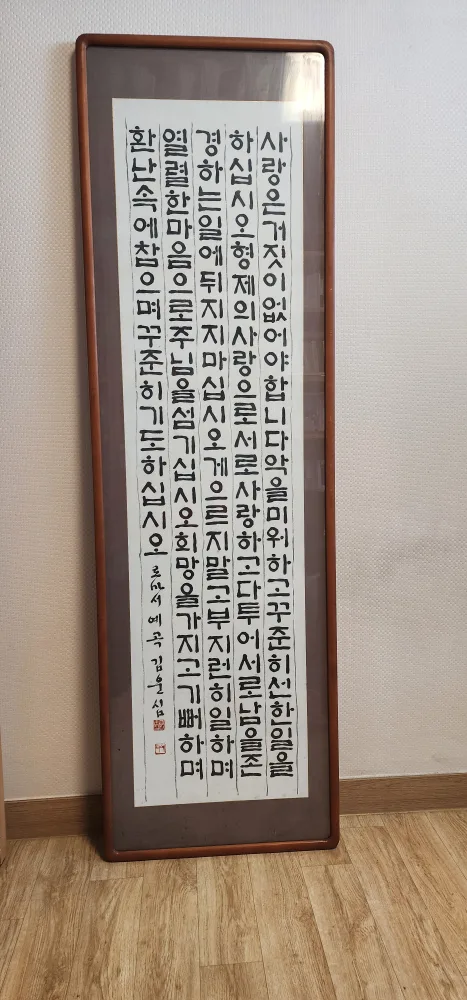 사랑은거짓이없어야합니다악을미워하고꾸준히선한일을
하십시오형제의사랑으로서로사랑하고다투어서로남을존
경하는일에뒤지지마십시오게으르지말고부지런히일하며
열렬한마음으로주님을섬기십시오희망을가지고기뻐하며
환난속에참으며꾸준히기도하십시오 로마서 예곡 김운심